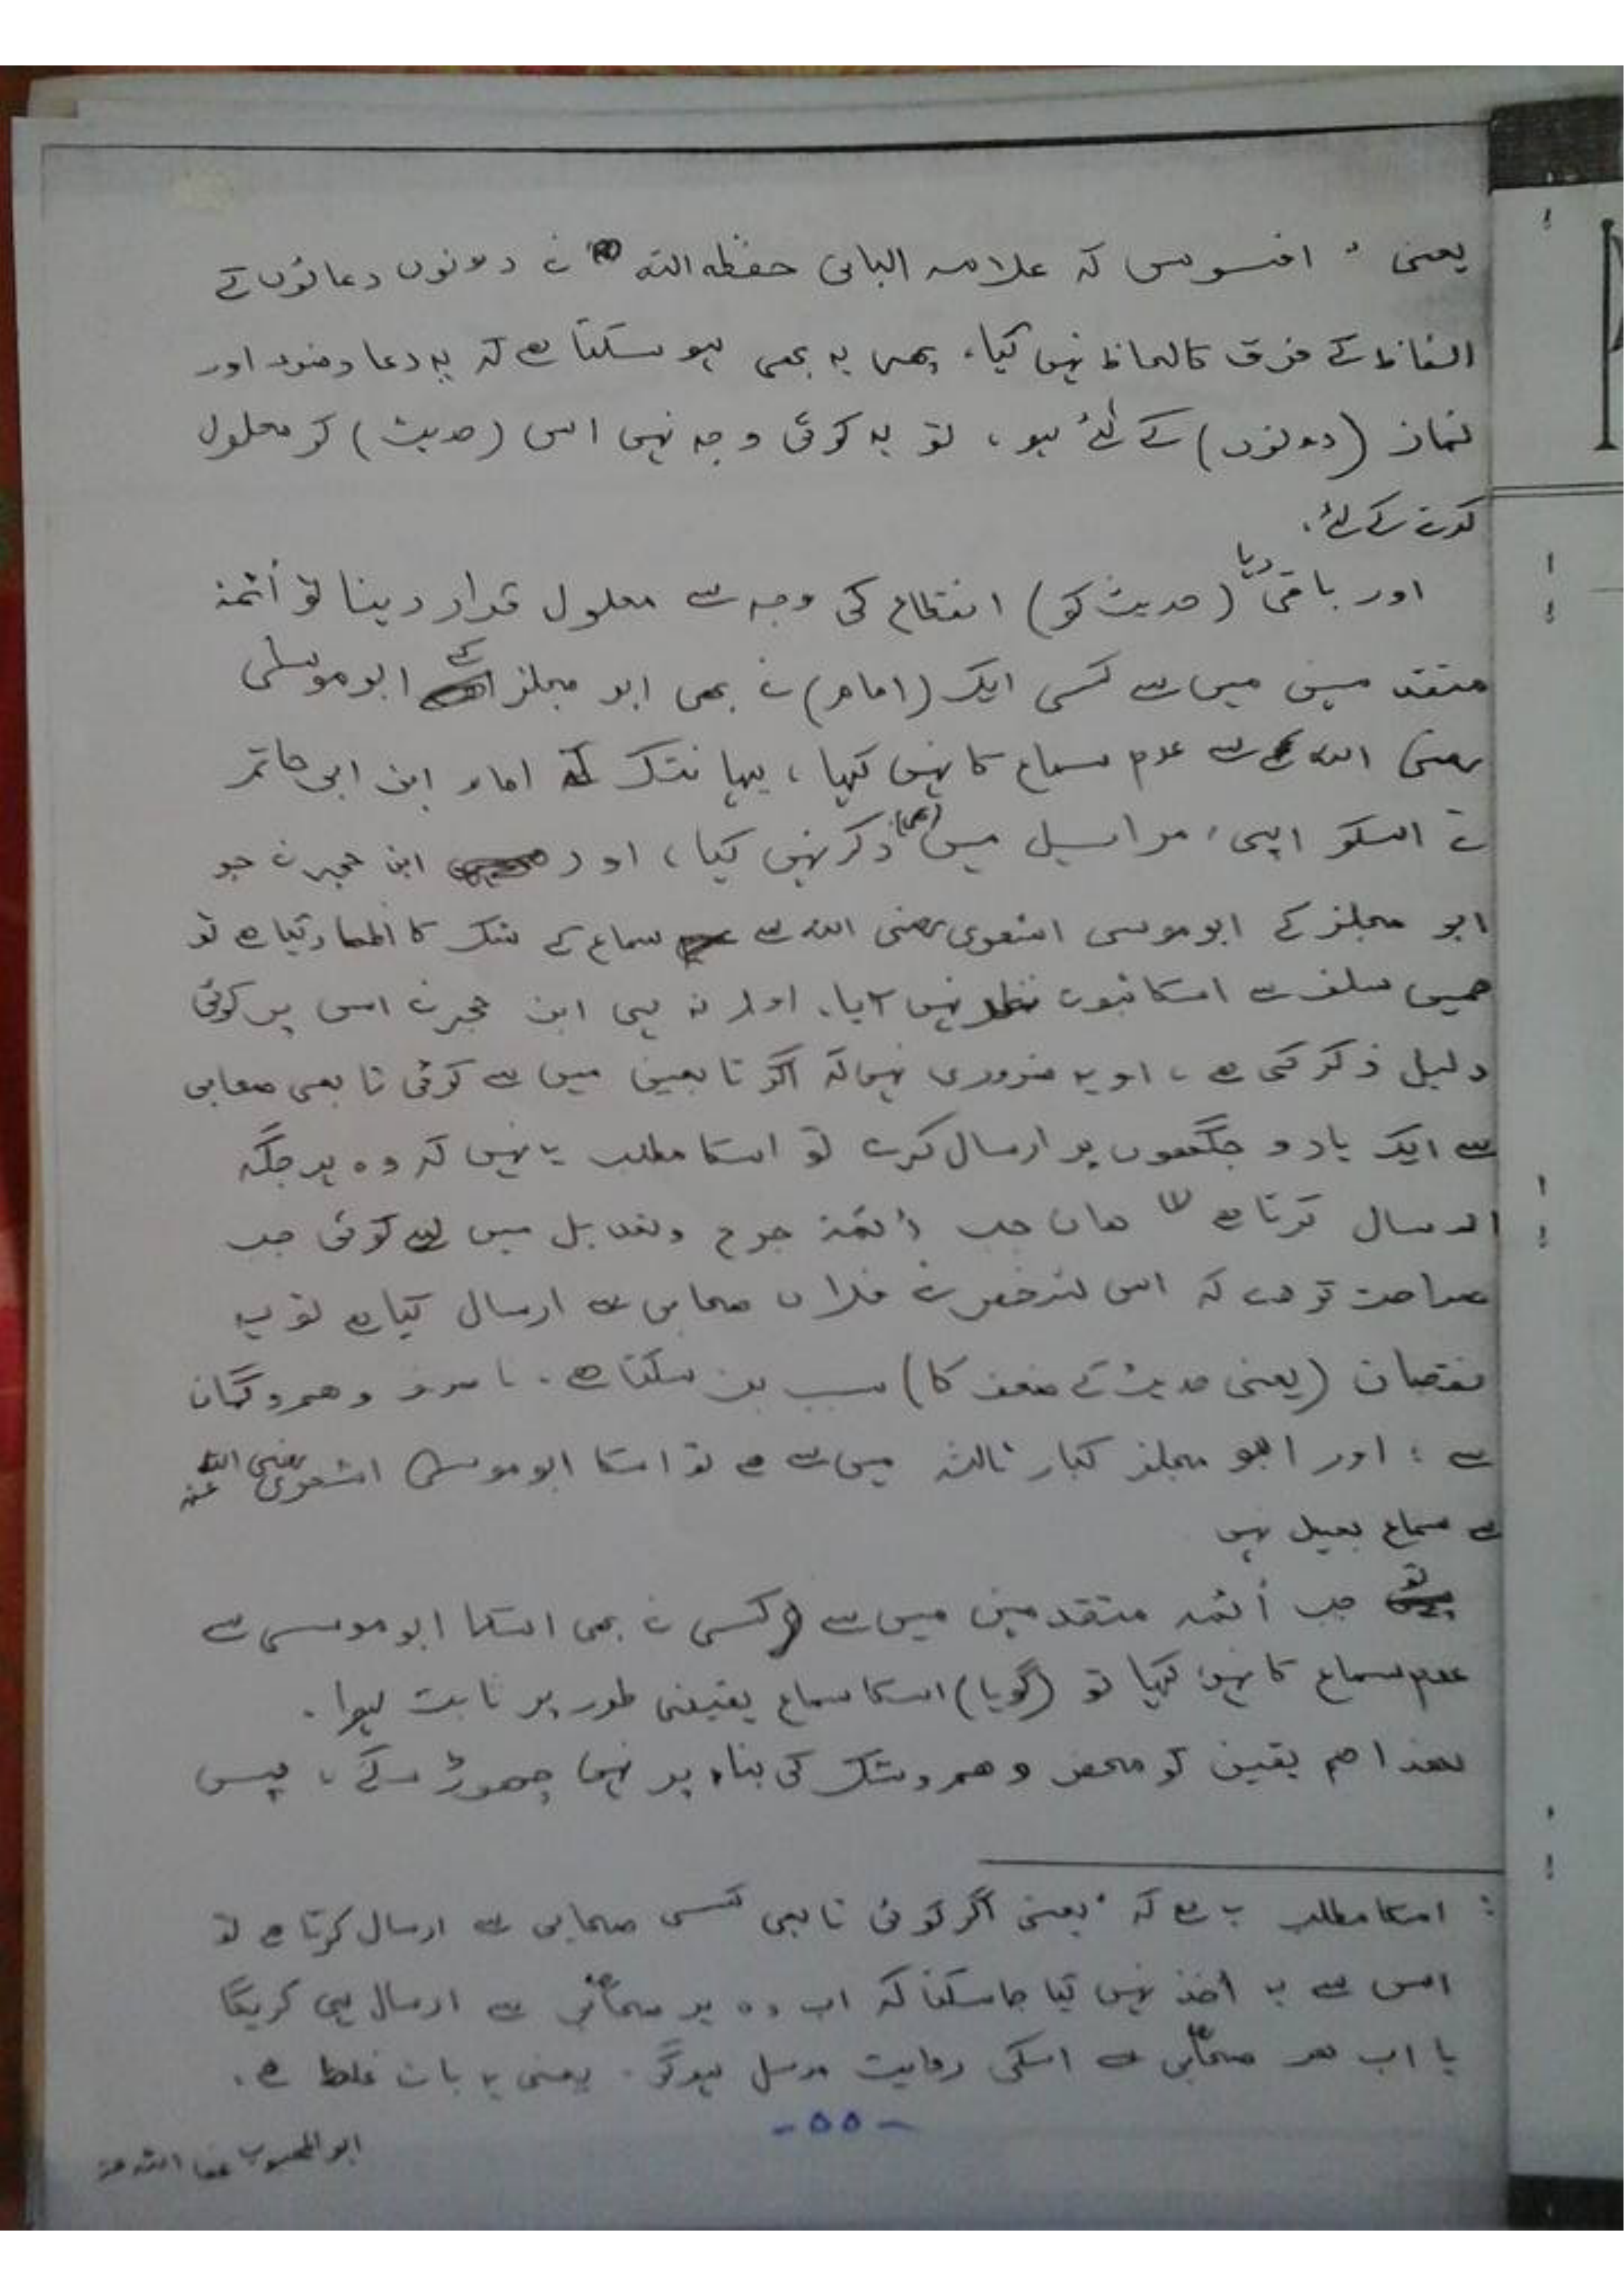 یعنی " افسوس کہ علامہ البانی حفظہ اللہ نے دونوں دعائوں کے
الفاظ کے فرق کا لحاظ نہیں کیا، پھر یہ بھی ہو سکتا ہے کہ یہ دعا وضوء اور
نماز (دونوں) کے لئے ہو، تو یہ کوئی وجہ نہیں اس (حدیث) کو معلول
کرنے کے لئے.
اور باقی رہا (حدیث کو) انقطاع کی وجہ سے معلول قرار دینا تو أئمۃ
متقدمین میں سے کسی ایک (امام) نے بھی ابو مجلز کے ابو موسیٰ
رضی اللہ سے عدم سماع کا نہیں کہا، یہانتک کہ امام ابن ابی حاتم
نے اسکو اپنی' مراسیل میں (بھی) ذکر نہیں کیا، اور ابن حجر نے جو
ابو مجلز کے ابو موسی اشعری رضی اللہ سے سماع کے شک کا اظہار کیا ہے تو
ھمیں سلف سے اسکا ثبوت نظر نہیں آیا. اور نہ ہی ابن حجر نے اس پر کوئی
دلیل ذکر کی ہے، او یہ ضروری نہیں کہ اگر تابعین میں سے کوئی تابعی صحابی
سے ایک یا دو جگھوں پر ارسال کرے تو اسکا مطلب یہ نہیں کہ وہ ہر جگہ
ارسال کرتا ہے ھاں جب أئمۃ جرح وتعدیل میں سے کوئی جب
صراحت کردے کہ اس شخص نے فلاں صحابی سے ارسال کیا ہے تو یہ
نقصان (یعنی حدیث کے ضعف کا) سبب بن سکتا ہے. نا صرف وھم وگمان
سے؛ اور ابو مجلز کبار ثالثہ میں سے ہے تو اسکا ابو موسیٰ اشعری رضی اللہ عنہ
سے سماع بعید نہیں
تو جب أئمہ متقدمین میں سے کسی نے بھی اسکا ابو موسی سے
عدم سماع کا نہیں کہا تو (گویا) اسکا سماع یقینی طور پر ثابت ہوا.
لھذا ھم یقین کو محض وھم وشک کی بناء پر نہیں چھوڑ سکے، پس
: اسکا مطلب یہ ہے کہ 'یعنی اگر کوئی تابعی کسی صحابی سے ارسال کرتا ہے تو
اس سے یہ أخذ نہیں کیا جاسکتا کہ اب وہ ہر صحابی سے ارسال ہی کریگا
یا اب ھر صحابی سے اسکی روایت مرسل ہوگی. یعنی یہ بات غلط ہے.
-۵۵-
ابو المحبوب عفا اللہ عنہ